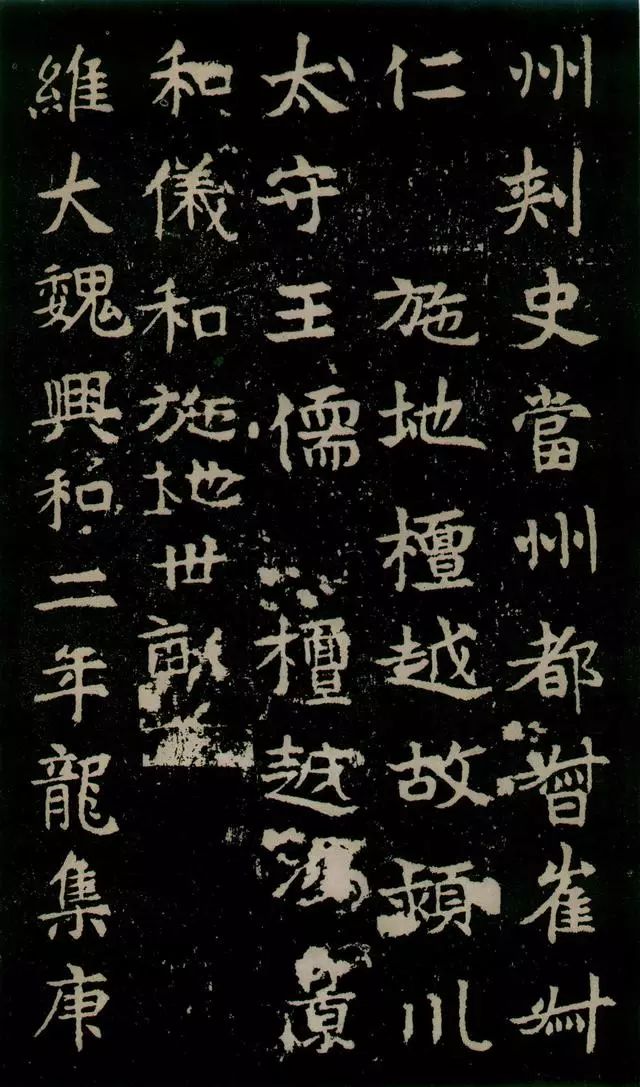 州刾史當州都督崔叔
仁 施地檀越故潁川
太守王儒 檀越原
和儀和施地世
維大魏興和二年龍集庚